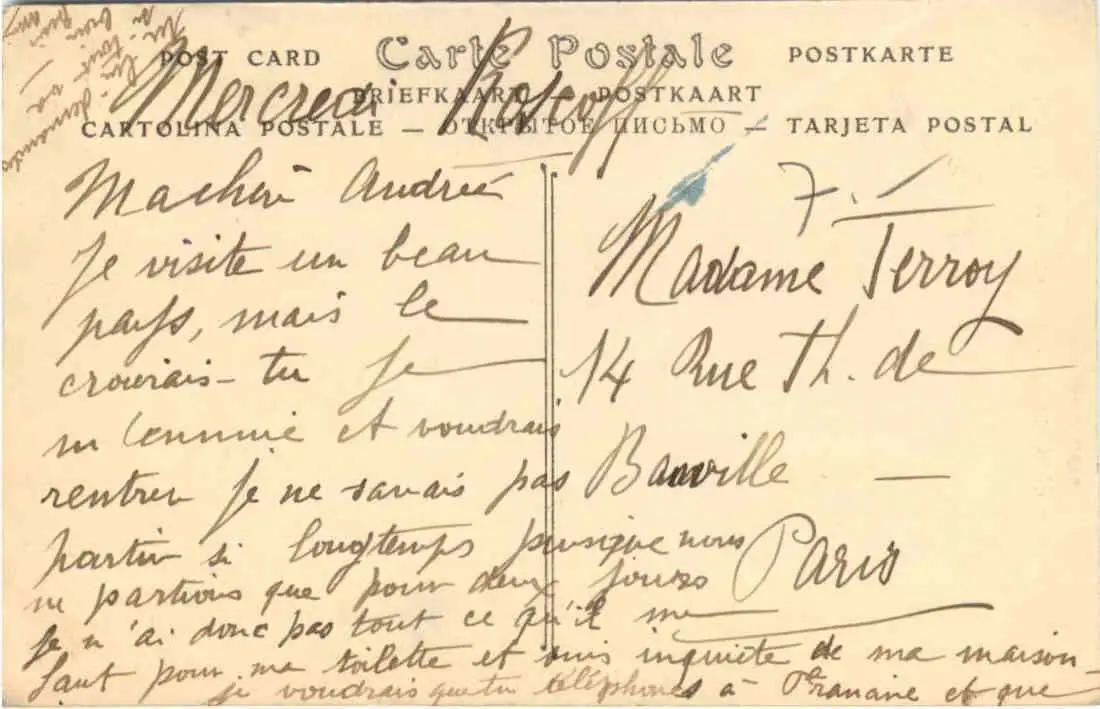 POST CARD Carte Postale POSTKARTE
BRIEFKAART — POSTKAART
CARTOLINA POSTALE — ОТКРЫТОЕ ПИСЬМО — TARJETA POSTAL
Mercredi Roscoff
Ma chère Andrée
je visite un beau
pays, mais le
croirais-tu je
m'ennuie et voudrais
rentrer je ne savais pas
partir si longtemps puisque nous
ne partions que pour deux jours
je n'ai donc pas tout ce qu'il me
faut pour ma toilette et suis inquiète de ma maison
je voudrais que tu téléphones à et que
Madame Terroy
14 Rue Th. de
Banville —
Paris